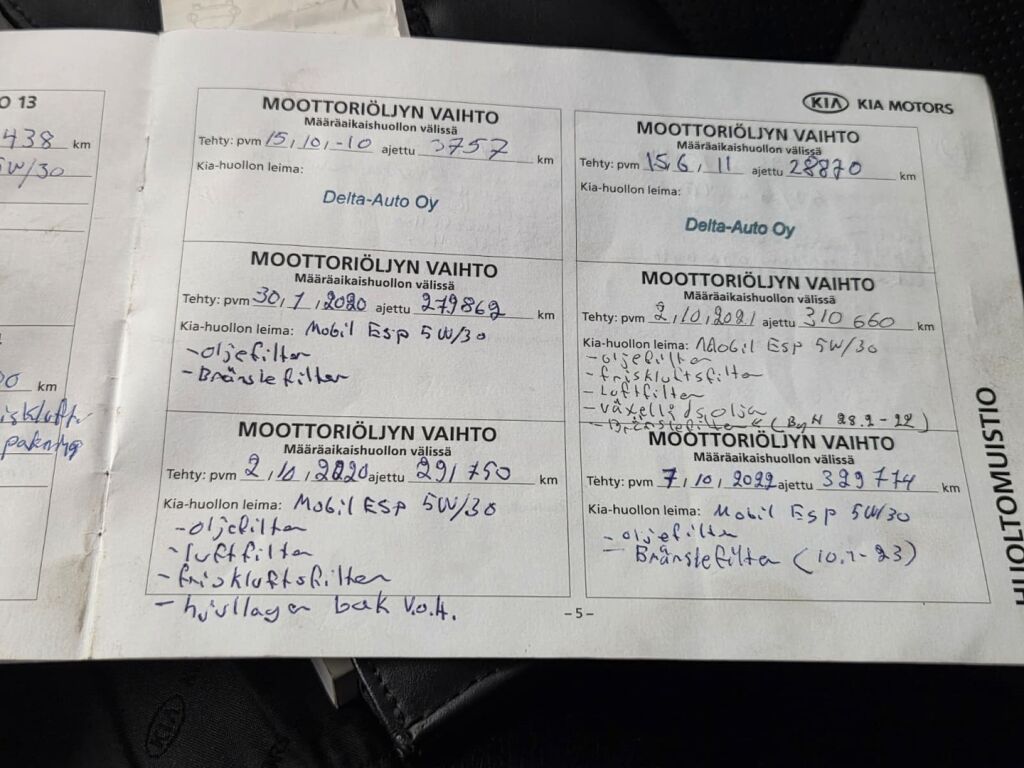 O 13
438 km
5W/30
km
KIA KIA MOTORS
MOOTTORIÖLJYN VAIHTO
Määräaikaishuollon välissä
Tehty: pvm 15,10,-10 ajettu 3757 km
Kia-huollon leima:
Delta-Auto Oy
MOOTTORIÖLJYN VAIHTO
Määräaikaishuollon välissä
Tehty: pvm 15,6, 11 ajettu 28870 km
Kia-huollon leima:
Delta-Auto Oy
MOOTTORIÖLJYN VAIHTO
Määräaikaishuollon välissä
Tehty: pvm 30,1,2020 ajettu 279862 km
Kia-huollon leima: Mobil Esp 5W/30
- oljefilter
- Bränslefilter
MOOTTORIÖLJYN VAIHTO
Määräaikaishuollon välissä
Tehty: pvm 2,10,2021 ajettu 310 660 km
Kia-huollon leima: Mobil Esp 5W/30
- oljefilter
- friskluftsfilter
- Luftfilter
- växellådsolja
- Bränslefilter (Byt 28.2-22)
MOOTTORIÖLJYN VAIHTO
Määräaikaishuollon välissä
Tehty: pvm 2,10,2020 ajettu 291 750 km
Kia-huollon leima: Mobil Esp 5W/30
- oljefilter
- luftfilter
- friskluftsfilter
- hjullager bak V.o.H.
MOOTTORIÖLJYN VAIHTO
Määräaikaishuollon välissä
Tehty: pvm 7,10,2022 ajettu 329 774 km
Kia-huollon leima: Mobil Esp 5W/30
- oljefilter
- Bränslefilter (10.1-23)
- 5 -
HUOLTOMUISTIO